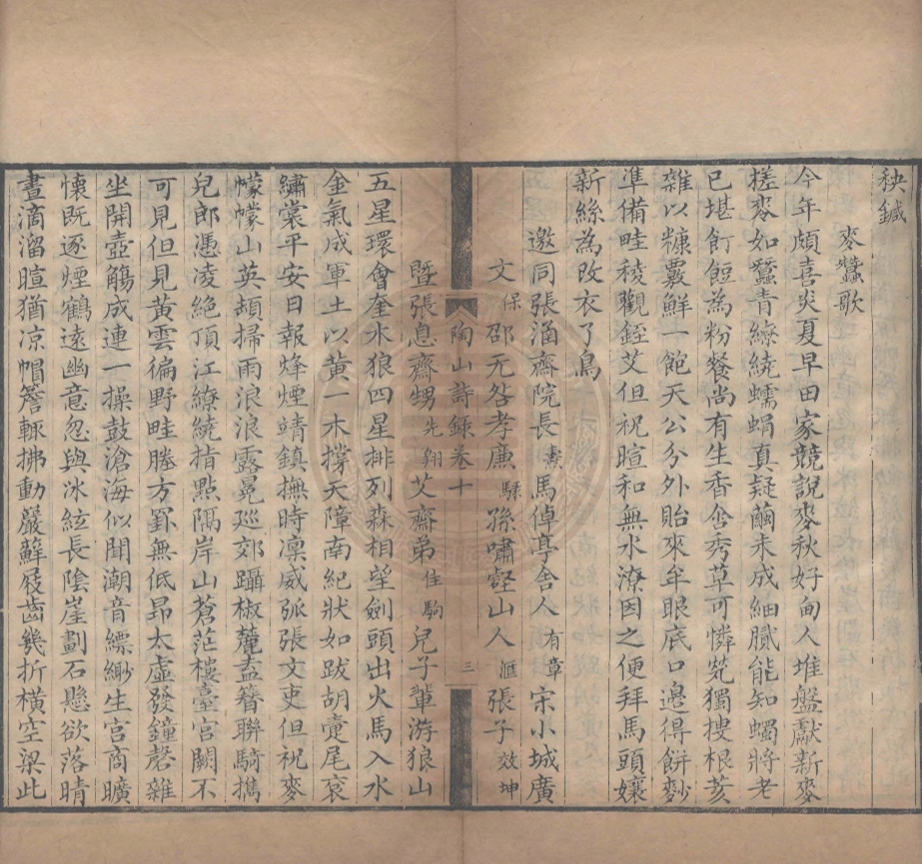 秧鍼
麥蠶歌
今年頗喜炎夏早田家競說麥秋好甸人堆盤獻新麥
搓麥如蠶青繚繞蠕蝡真疑繭未成細膩能知蠋將老
已堪飣餖為粉餐尚有生香含秀草可憐煢獨摟根荄
雜以糠覈鮮一飽天公分外貽來牟眼底口邊得餅麨
準備畦稜觀銍艾但祝暄和無水潦因之便拜馬頭孃
新絲為改衣了鳥
邀同張涵齋院長燾馬倬亭舍人有章宋小城廣
文保邵无咎孝廉騄孫嘯壑山人滙張子效坤
陶山詩錄卷十 三
暨張息齋甥先翔艾齋弟佳駒兒子輩游狼山
五星環會奎水狼四星排列森相望劍頭出火馬入水
金氣成軍土以黃一木撐天障南紀狀如跋胡疐尾哀
繡裳平安日報烽煙靖鎮撫時凜威弧張文吏但祝麥
幪幪山英頮掃雨浪浪露冕巡郊躡椒麓盍簪聯騎攜
兒郎憑凌絕頂江繚繞指點隔岸山蒼茫樓臺宮闕不
可見但見黃雲徧野畦塍方罫無低昂太虛發鐘磬雜
坐開壺觴成連一操鼓滄海似聞潮音縹緲生宮商曠
懷既逐煙鶴遠幽意忽與冰絃長陰崖劃石懸欲落晴
晝滴溜暄猶凉帽簷輒拂動巖蘚屐齒幾折橫空梁此